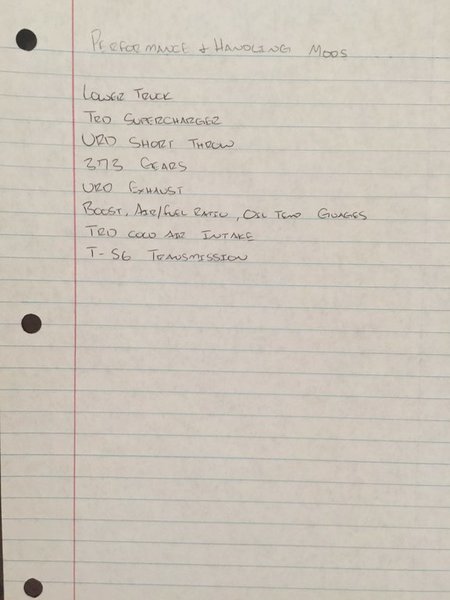 PERFORMANCE & HANDLING MODS
LOWER TRUCK
TRD SUPERCHARGER
URD SHORT THROW
373 GEARS
URD EXHAUST
BOOST, AIR/FUEL RATIO, OIL TEMP GUAGES
TRD COLD AIR INTAKE
T-56 TRANSMISSION